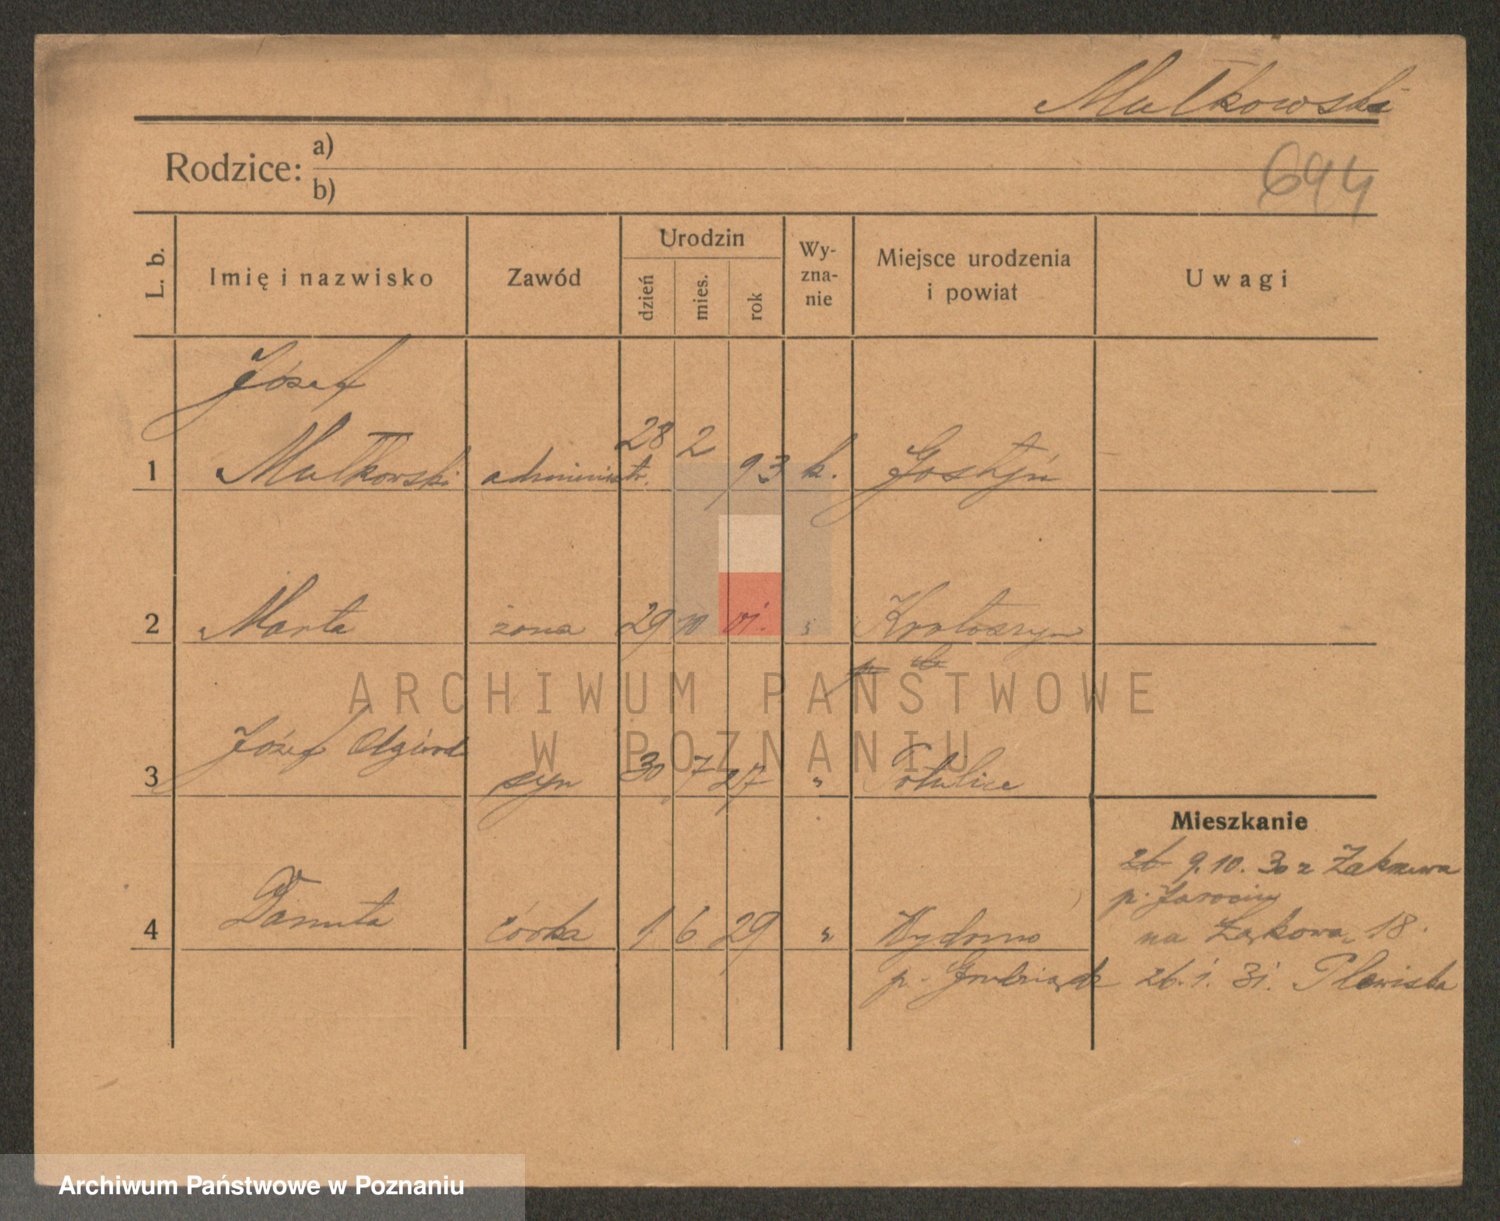 Małkowski
Rodzice: a)
b)
694
L. b. Imię i nazwisko Zawód Urodzin dzień mies. rok Wy-zna-nie Miejsce urodzenia i powiat Uwagi
Józef
1 Małkowski administr. 28 2 93 k. Gostyń
2 Marta żona 29 10 01. " Krotoszyn
ARCHIWUM PAŃSTWOWE
W POZNANIU
3 Józef Olgierd syn 30 7 27 " Potulice
Mieszkanie
9.10.30 z Zakrzewa
p. Jarocin
4 Danuta córka 1 6 29 " na Łąkowa 18.
p. Grudziądz 26.1.31. Plewiska
Archiwum Państwowe w Poznaniu